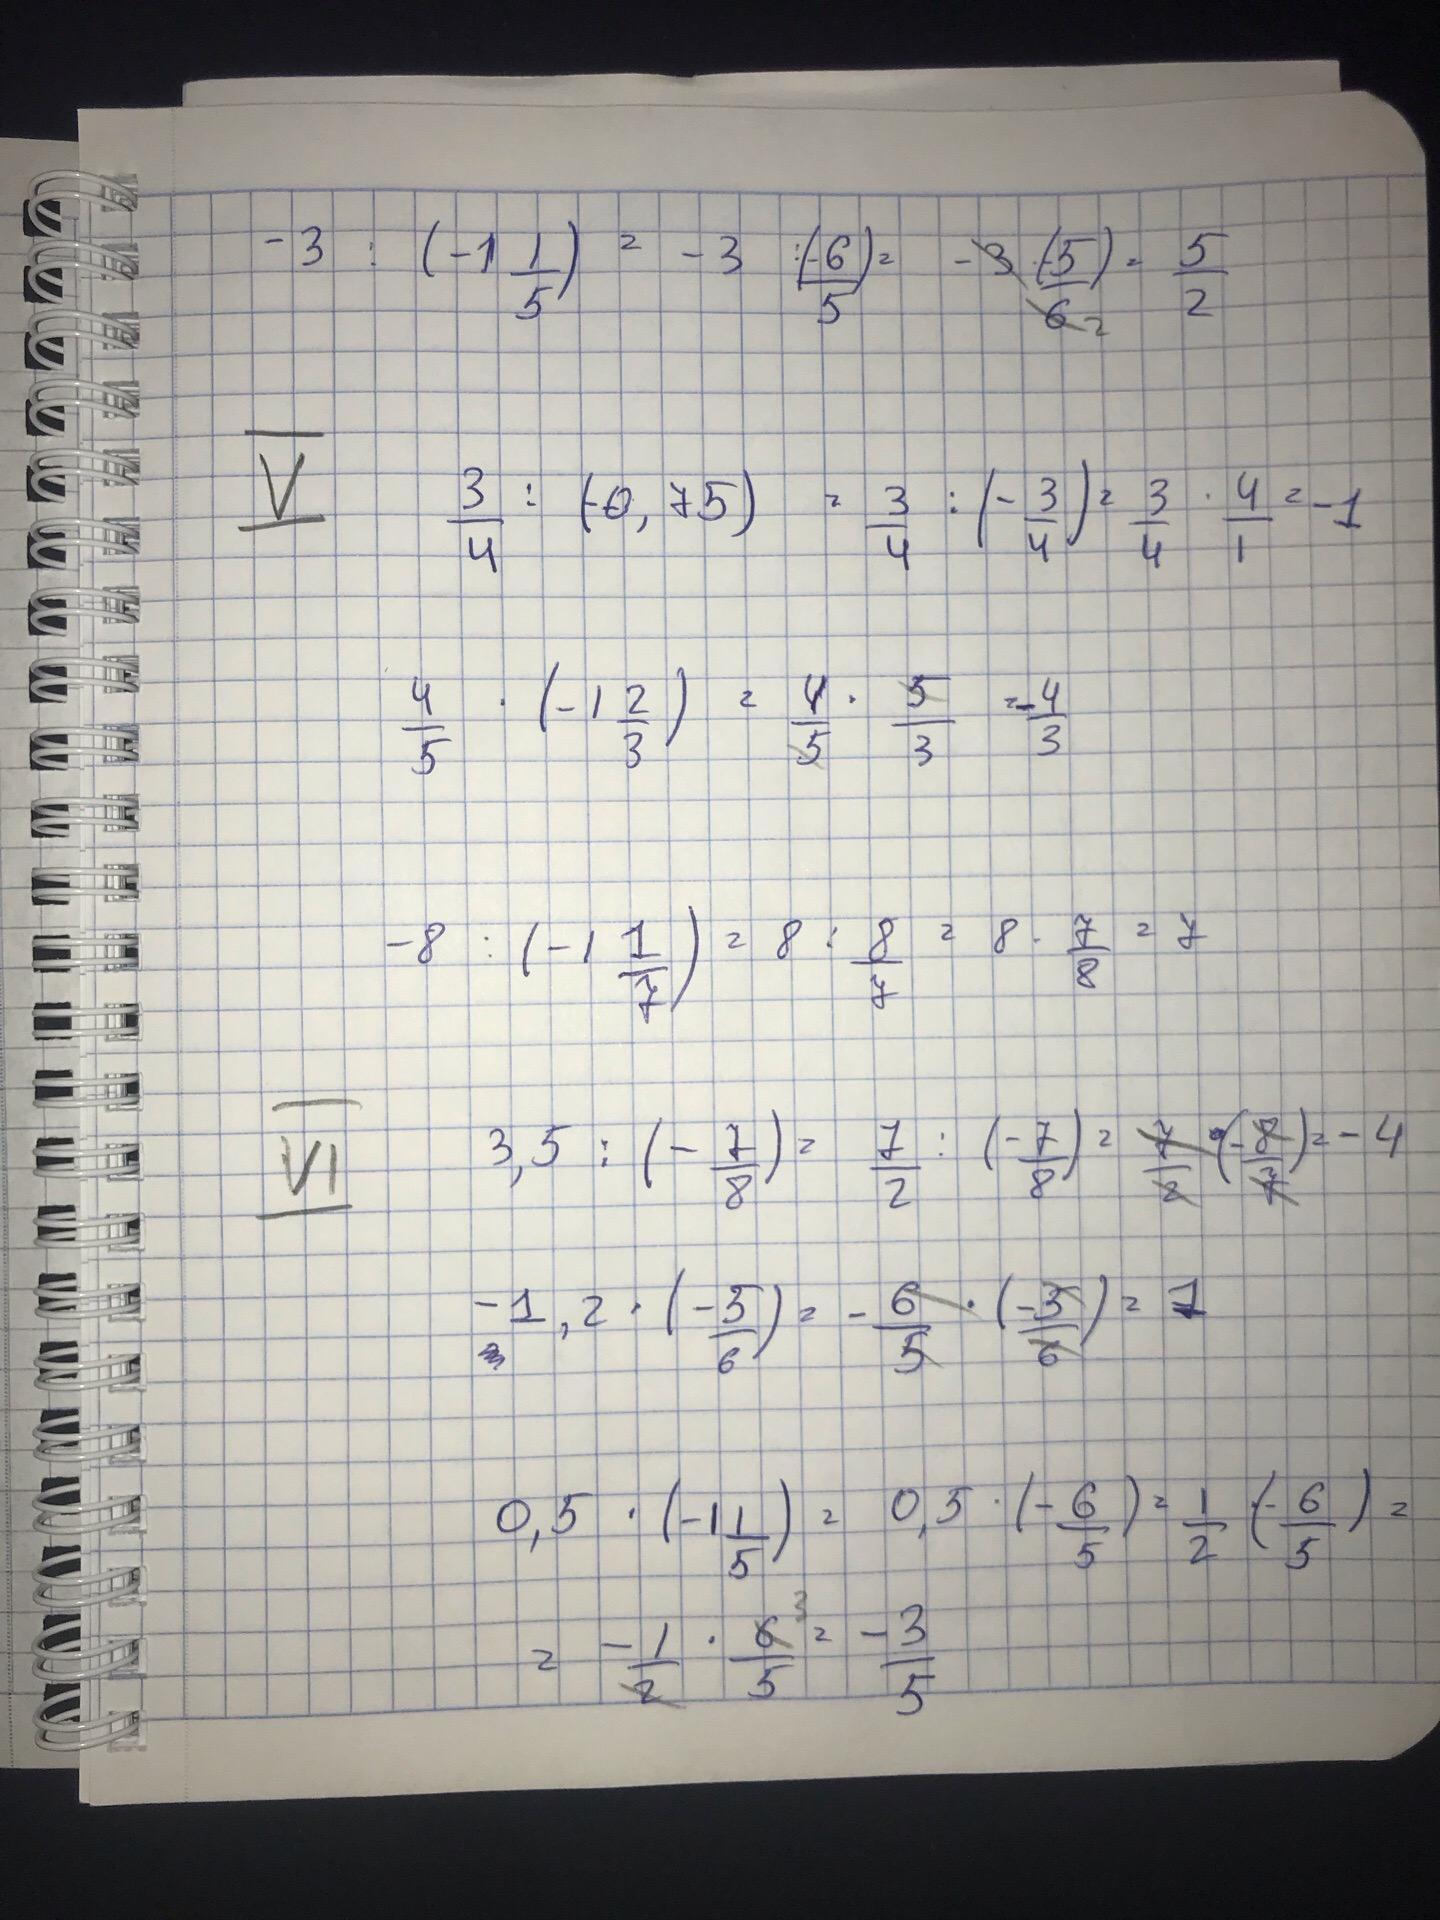 -3 : (-1 1/5) = -3 : (-6/5) = -3 · (-5/6) 2 = 5/2
V 3/4 : (-0,75) = 3/4 : (-3/4) = 3/4 · 4/1 = -1
4/5 · (-1 2/3) = 4/5 · 5/3 = -4/3
-8 : (-1 1/7) = 8 : 8/7 = 8 · 7/8 = 7
VI 3,5 : (-7/8) = 7/2 : (-7/8) = 7/2 · (-8/7) = -4
-1,2 · (-5/6) = -6/5 · (-5/6) = 1
0,5 · (-1 1/5) = 0,5 · (-6/5) = 1/2 · (-6/5) =
= -1/2 · 6/5 3 = -3/5